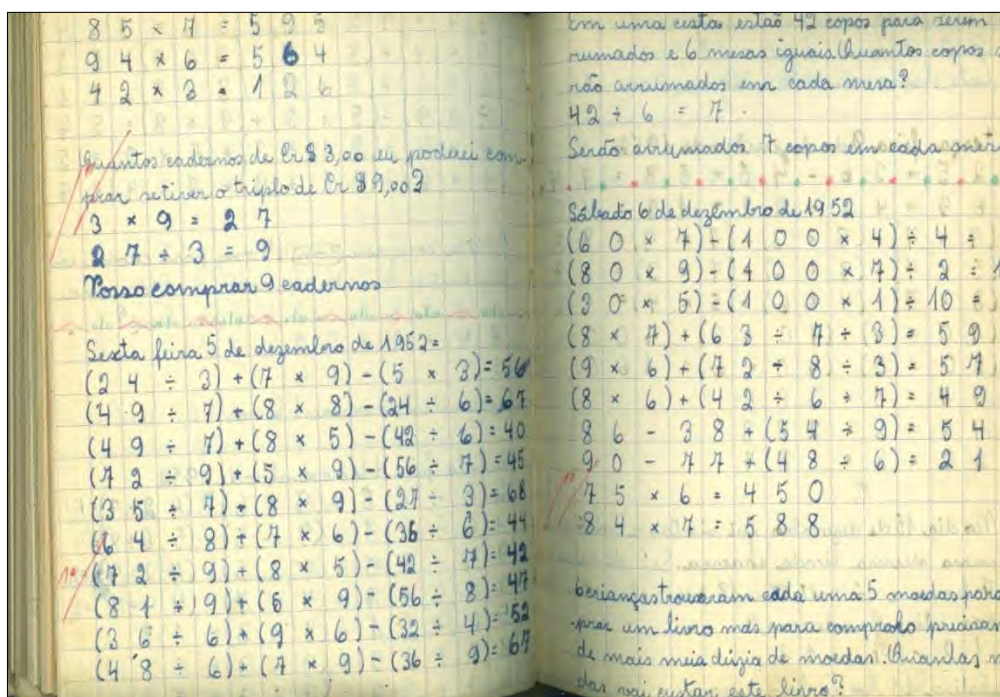 8 5 × 7 = 5 9 5
9 4 × 6 = 5 6 4
4 2 × 3 = 1 2 6
Quantos cadernos de Cr $ 3,00 eu poderei com-
prar se tiver o triplo de Cr $ 9,00?
3 × 9 = 2 7
2 7 ÷ 3 = 9
Posso comprar 9 cadernos
Sexta feira 5 de dezembro de 1952=
(2 4 ÷ 3) + (7 × 9) - (5 × 3) = 56
(4 9 ÷ 7) + (8 × 8) - (24 ÷ 6) = 67
(4 9 ÷ 7) + (8 × 5) - (42 ÷ 6) = 40
(7 2 ÷ 9) + (5 × 9) - (56 ÷ 7) = 45
(3 5 ÷ 7) + (8 × 9) - (27 ÷ 3) = 68
(6 4 ÷ 8) + (7 × 6) - (36 ÷ 6) = 44
10 (7 2 ÷ 9) + (8 × 5) - (42 ÷ 7) = 42
(8 1 ÷ 9) + (5 × 9) - (56 ÷ 8) = 47
(3 6 ÷ 6) + (9 × 6) - (32 ÷ 4) = 52
(4 8 ÷ 6) + (7 × 9) - (36 ÷ 9) = 67
Em uma cesta estão 42 copos para serem
rumados e 6 mesas iguais. Quantos copos s
rão arrumados em cada mesa?
42 ÷ 6 = 7.
Serão arrumados 7 copos em cada mesa
Sábado 6 de dezembro de 1952
(6 0 × 7) - (1 0 0 × 4) ÷ 4 =
(8 0 × 9) - (1 0 0 × 7) ÷ 2 = 1
(3 0 × 5) - (1 0 0 × 1) ÷ 10 =
(8 × 7) + (6 3 ÷ 7 ÷ 3) = 5 9
(9 × 6) + (7 2 ÷ 8 ÷ 3) = 5 7
(8 × 6) + (4 2 ÷ 6 ÷ 7) = 4 9
8 6 - 3 8 + (5 4 ÷ 9) = 5 4
9 0 - 7 7 + (4 8 ÷ 6) = 2 1
10 7 5 × 6 = 4 5 0
8 4 × 7 = 5 8 8
6 crianças trouxeram cada uma 5 moedas para
prar um livro mas para compralo precisam
de mais meia dúzia de moedas. Quantas m
das vai custar este livro?